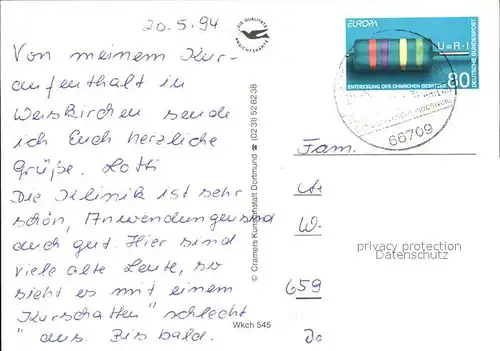 20.5.94
DIE QUALITÄTS
ANSICHTSKARTE
Von meinem Kur-
aufenthalt in
Weiskirchen sende
ich Euch herzliche
Grüße. Lotti
Die Klinik ist sehr
schön, Anwendungen sind
auch gut. Hier sind
viele alte Leute, so
sieht es mit einem
"Kurschatten" schlecht
aus. Bis bald.
© Cramers Kunstanstalt Dortmund ☎ (0231) 528238
Wkch 545
EUROPA
U=R·I
DEUTSCHE BUNDESPOST
ENTDECKUNG DES OHMSCHEN GESETZES
80
66709
Fam.
W-
privacy protection
Variable Data
659